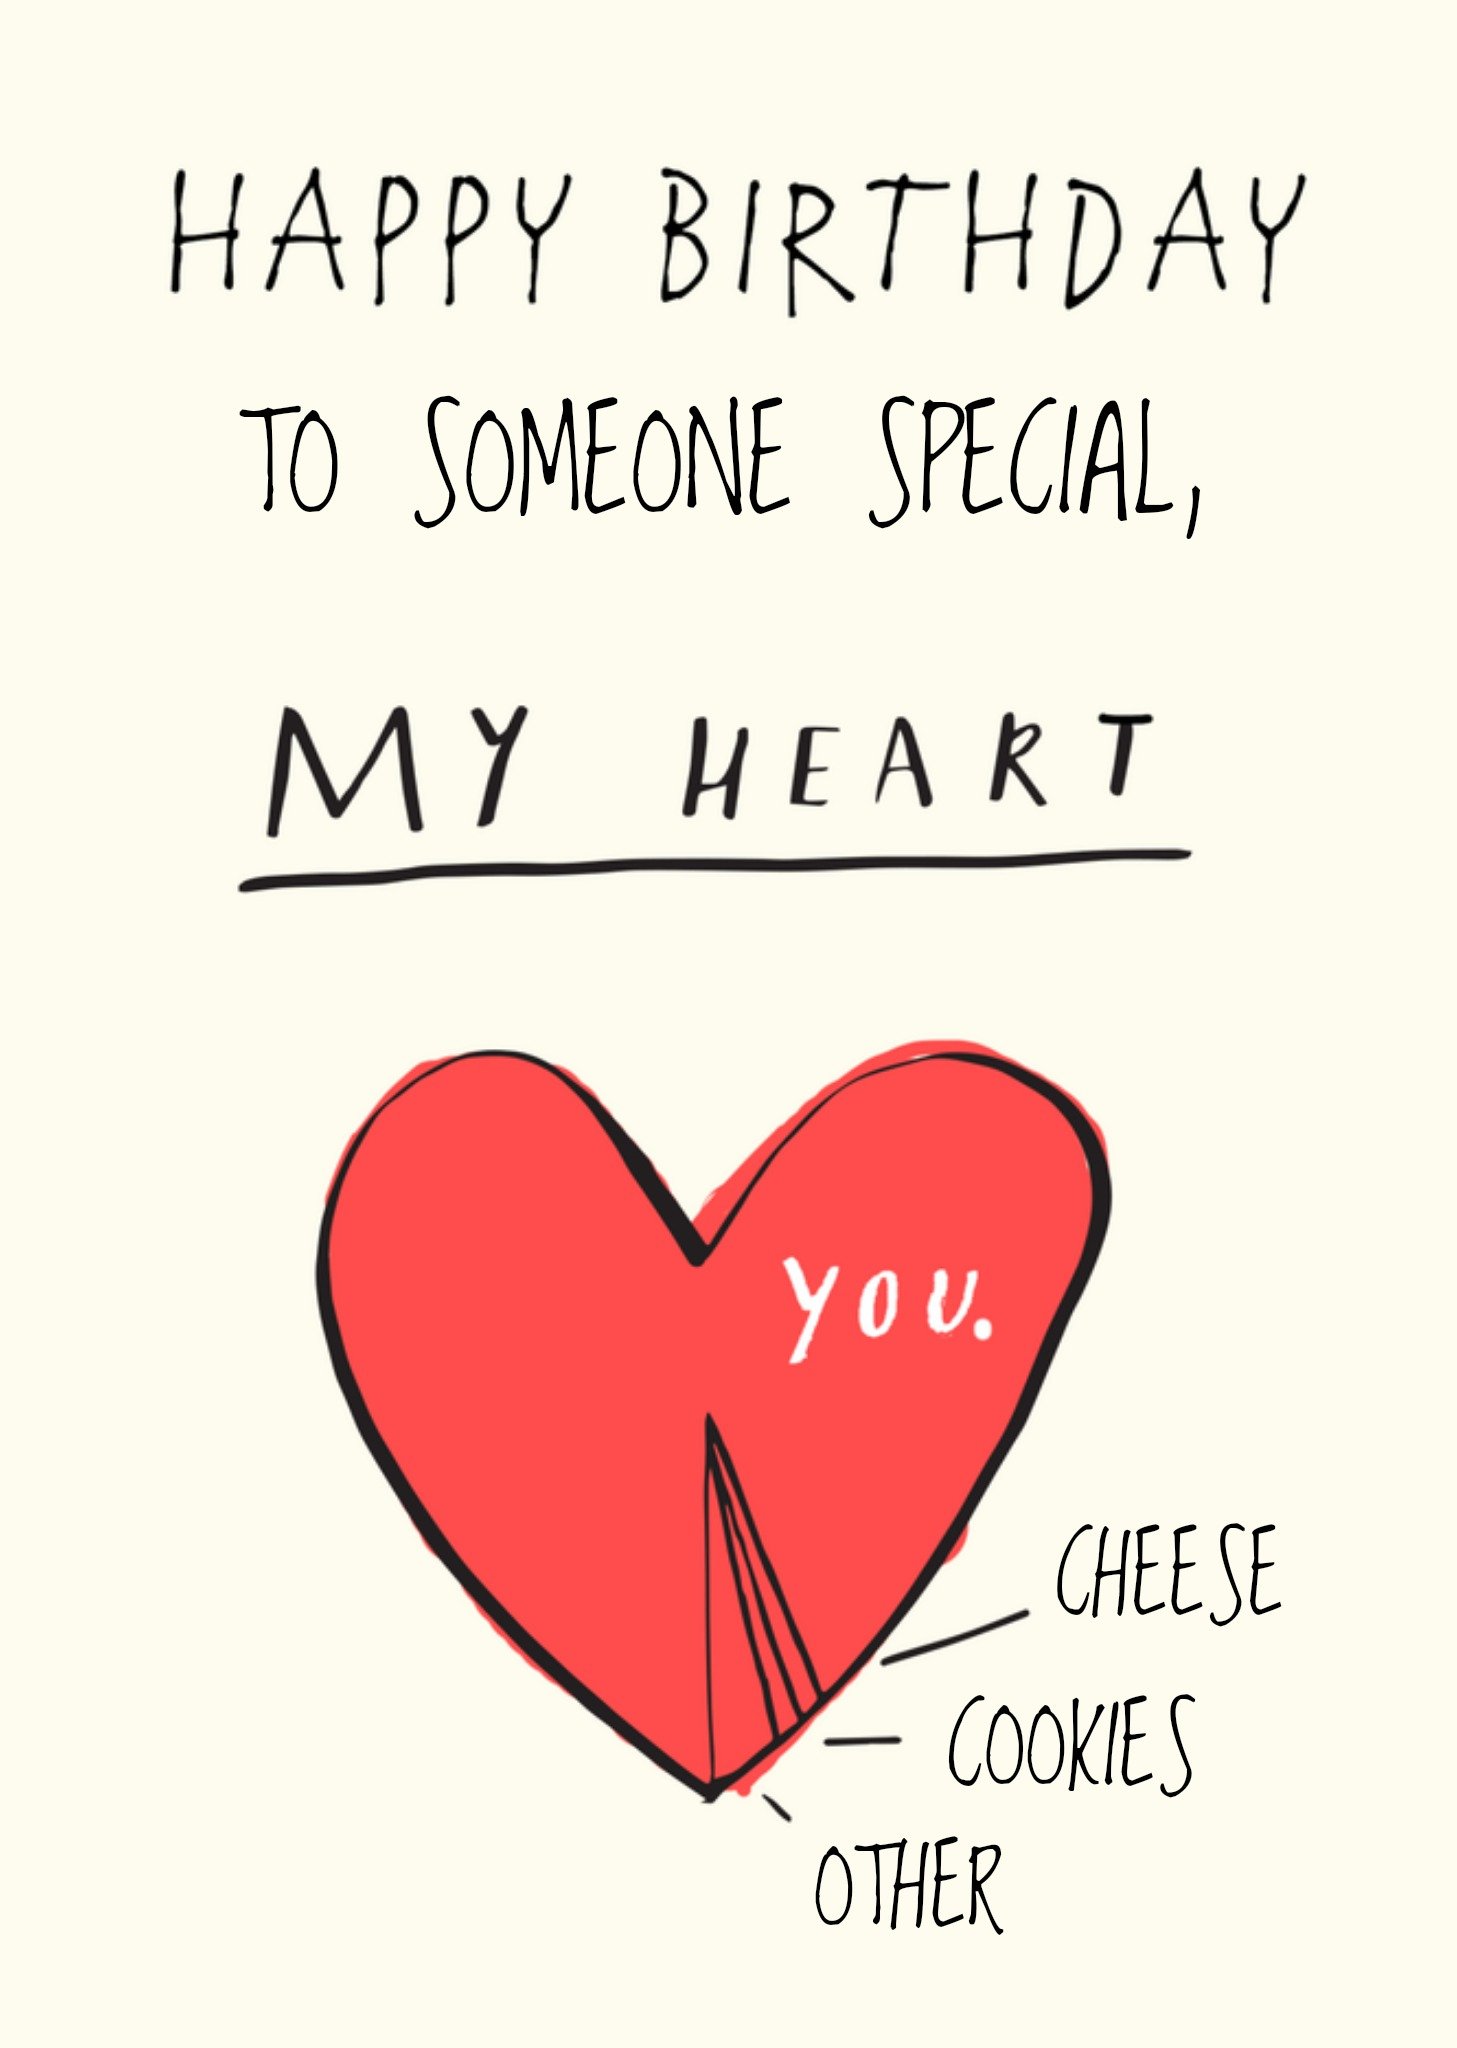 HAPPY BIRTHDAY
TO SOMEONE SPECIAL,
MY HEART
YOU.
CHEESE
COOKIES
OTHER